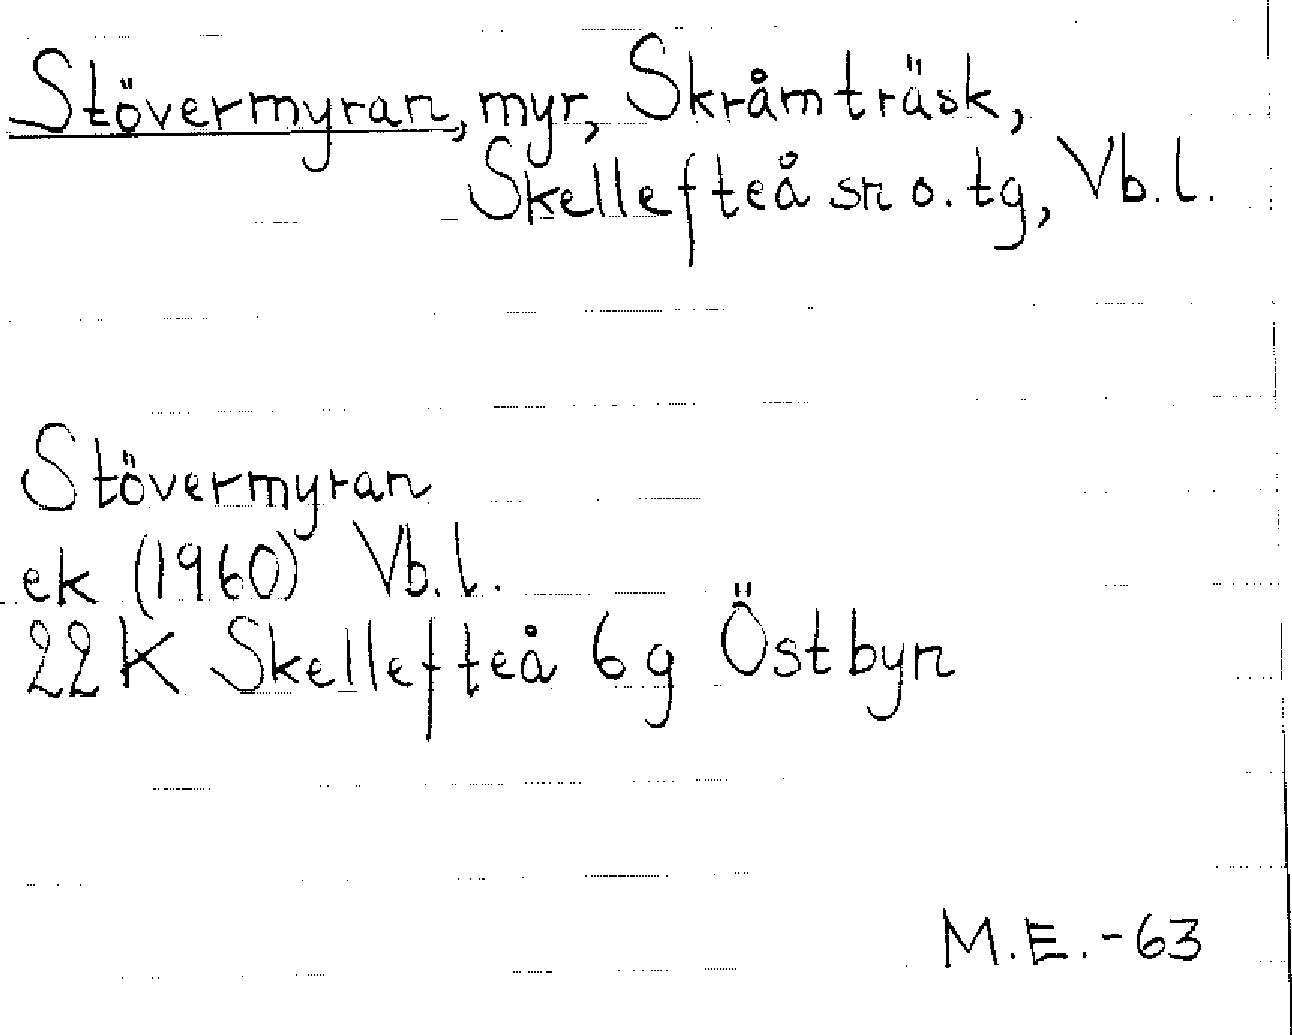 Stövermyran, myr, Skråmträsk,
Skellefteå sn o. tg, Vb.l.
Stövermyran
ek (1960) Vb.l.
22K Skellefteå 6g Östbyn
M.E.-63